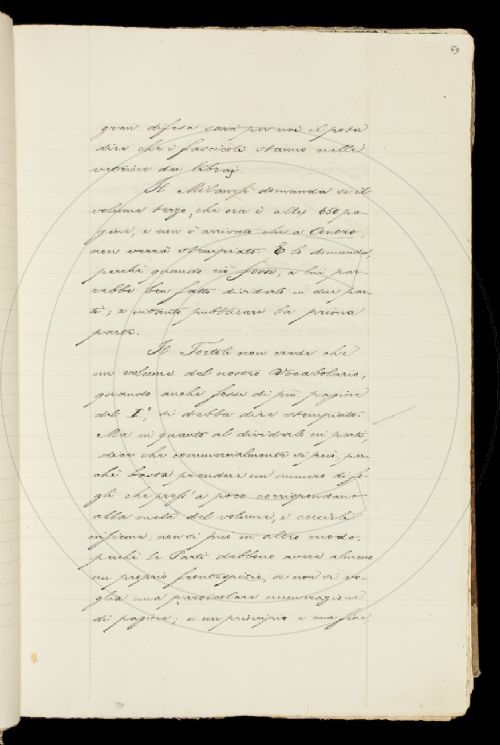 69
gran difesa sarà per noi il poter
dire che i fascicoli stanno nelle
vetrine dei librai.
Il Milanesi domanda se il
volume terzo, che ora è alle 650 pa-
gine, e non è arrivato che a Centro,
non verrà stempiato. E lo domanda,
perchè quando ciò fosse, a lui par-
rebbe ben fatto dividerlo in due par-
ti; e intanto pubblicare la prima
parte.
Il Tortoli non crede che
un volume del nostro Vocabolario,
quando anche fosse di più pagine
del I°, si debba dire stempiato.
Ma in quanto al dividerlo in parti,
dice che commercialmente si può, per-
chè basta prendere un numero di fo-
gli che press'a poco corrispondano
alla metà del volume, e cucirli
insieme: non si può in altro modo,
perchè le Parti debbono avere almeno
un proprio frontespizio, se non si vo-
glia una particolare numerazione
di pagine; e un principio e una fine